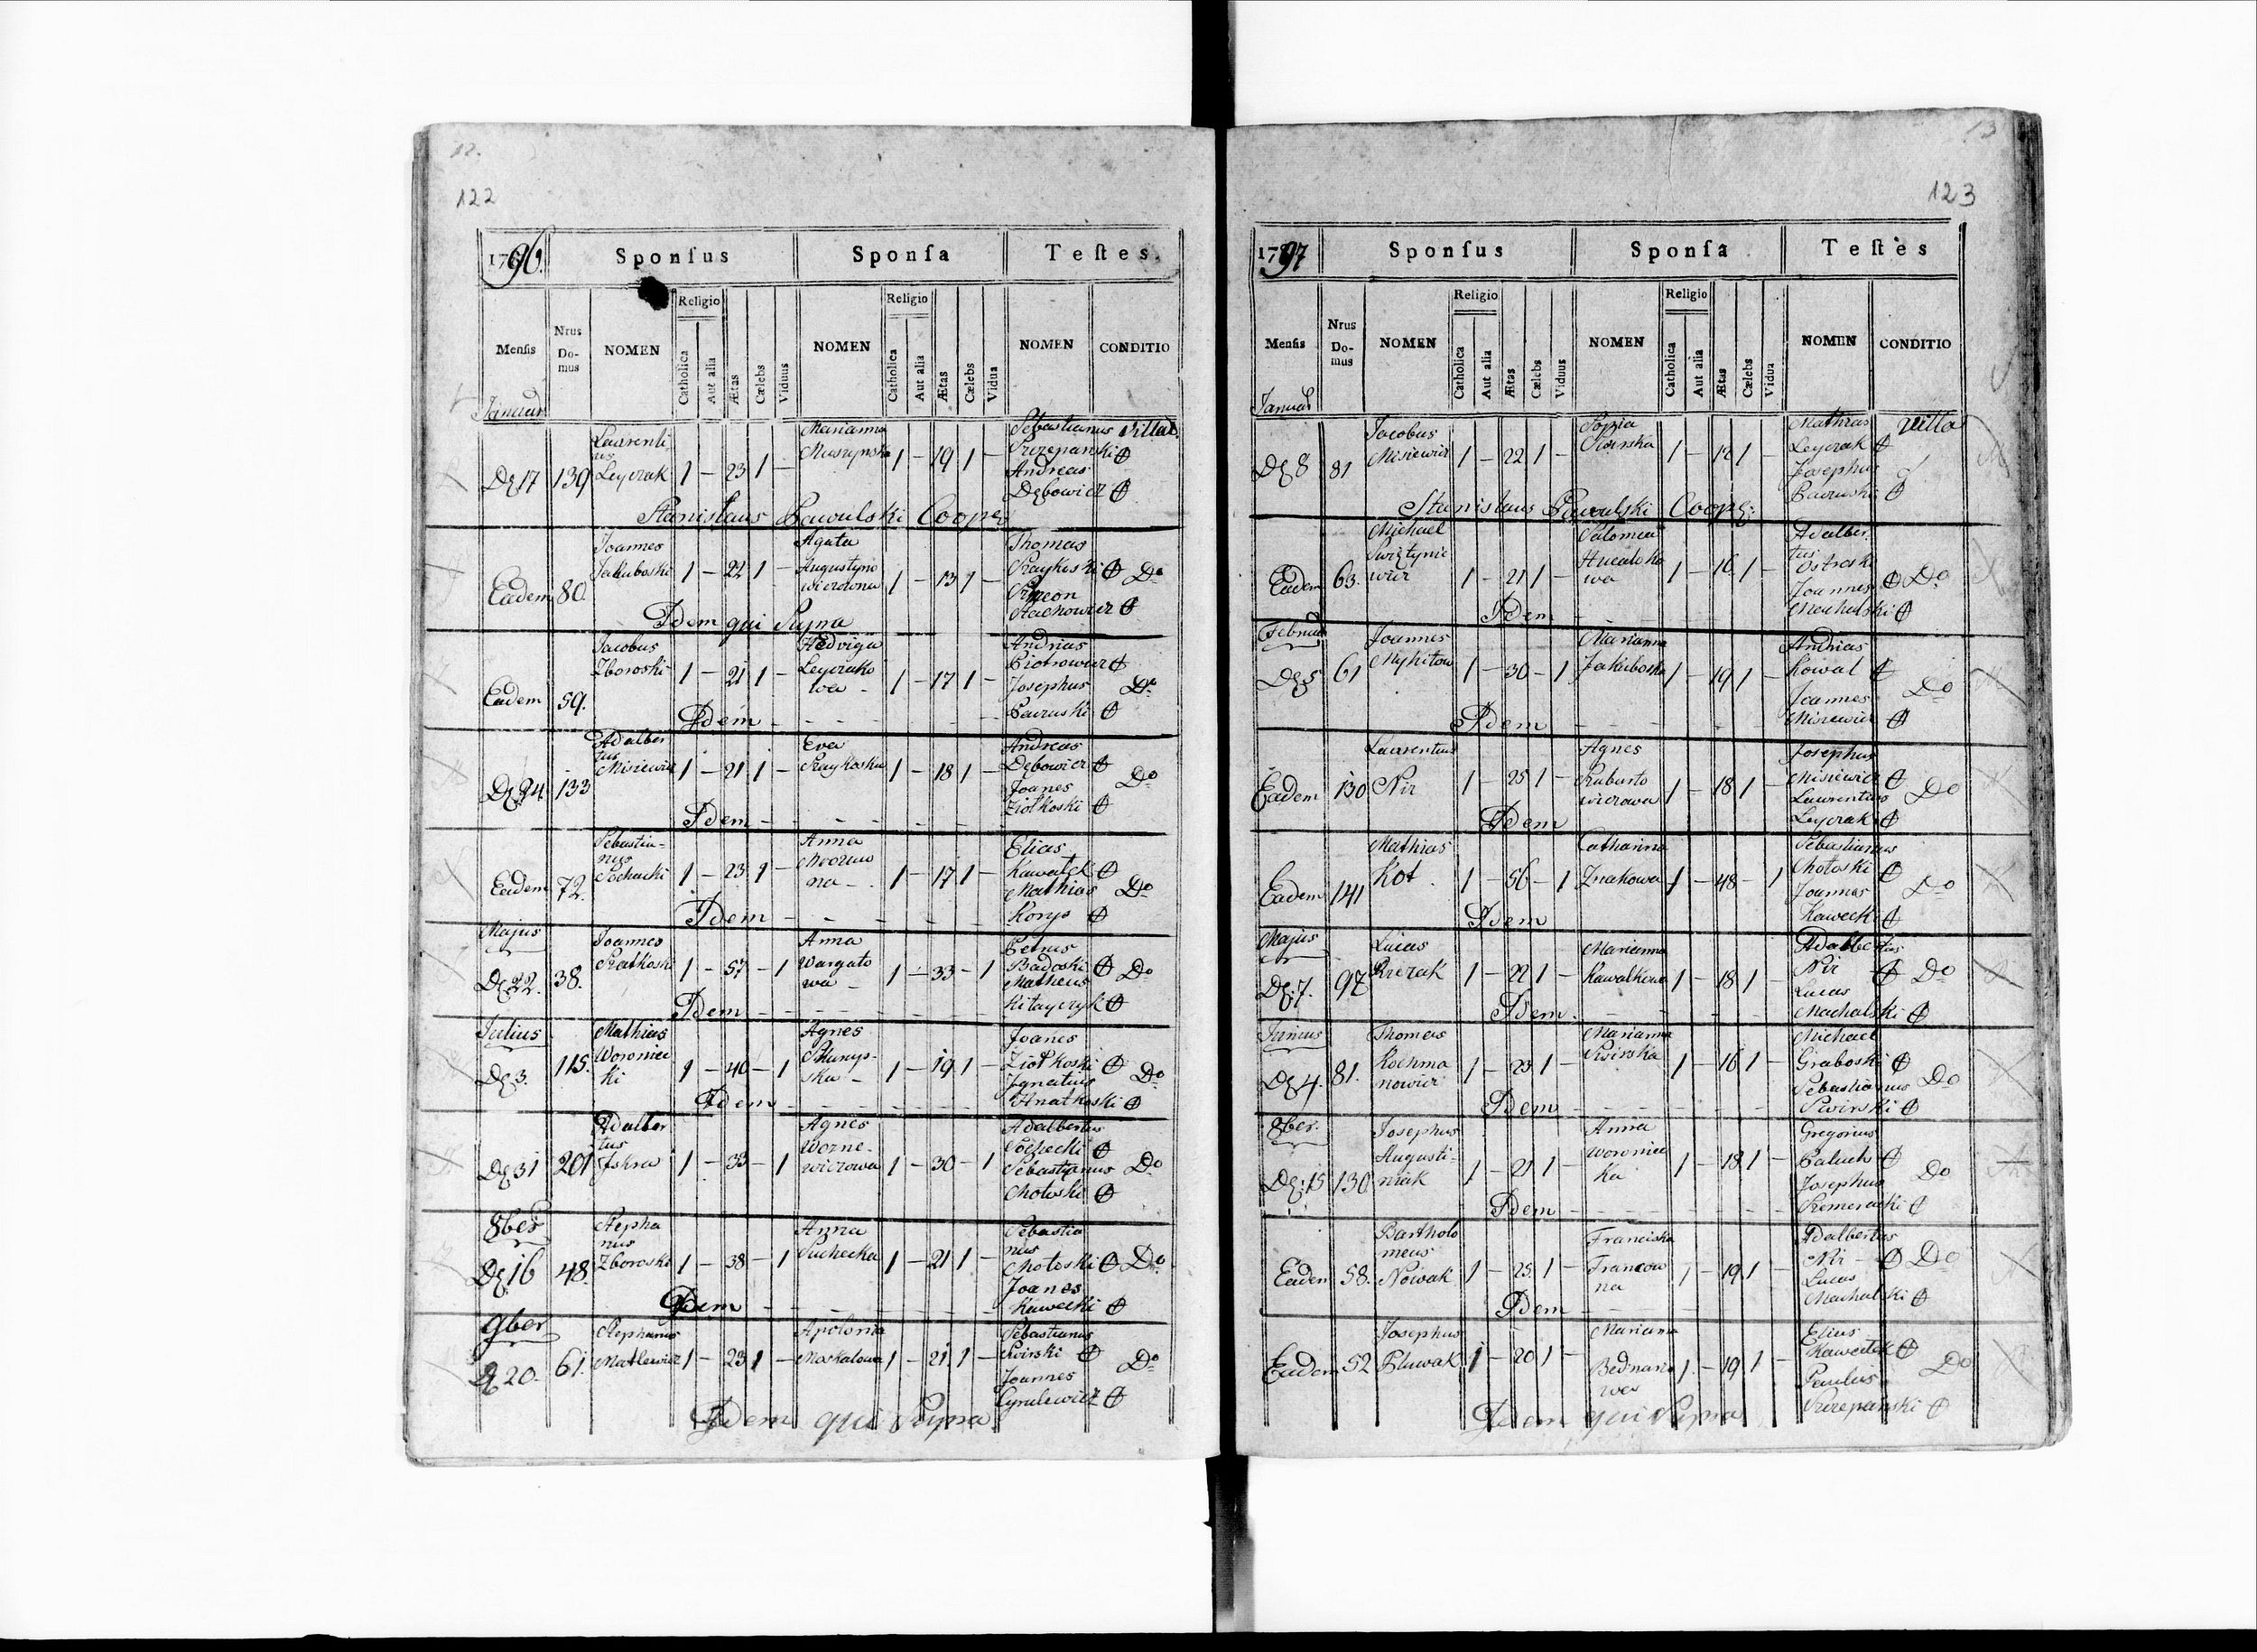 12.
122
1796.
Sponſus
Sponſa
Teſtes.
Menſis
Nrus
Do-
mus
NOMEN
Religio
Catholica
Aut alia
Ætas
Cælebs
Viduus
NOMEN
Religio
Catholica
Aut alia
Ætas
Cælebs
Vidua
NOMEN
CONDITIO
Januar
Laurenti Marianna Sebastianus Villa
us Muszynska Szczepanski
De 17 139 Leyczak 1 – 23 1 – 1 – 19 1 – Andreas
Dębowicz
Stanislaus Pawulski Coope
Joannes Agata Thomas
Jakuboski 1 – 22 1 – Augustyno 1 – 13 1 – Do
Eadem 80. wiczowna Symeon
Stachowicz
Idem qui Supra
Jacobus Hedviga Andrias
Zboroski 1 – 21 1 – Leyczako 1 – 17 1 – Piotrowicz
Eadem 59. wa – Josephus Do
Idem Pawuski
Adalber Eva Andreas
tus Dębowicz
De 24 133 Misiewicz 1 – 21 1 – 1 – 18 1 – Joanes Do
Idem Ziołkoski
Sebastia- Anna Elias
nus Kawałek
Eadem 72. Sochacki 1 – 23 1 – na – 1 – 17 1 – Mathias Do
Idem Korys
Majus Joannes Anna Petrus
De 22. 38. 1 – 57 – 1 Wargato 1 – 33 – 1 Badoski Do
wa – Matheus
Idem Kitayczyk
Julius Mathias Agnes Joanes
De 3. 115. Woroniec 1 – 40 – 1 1 – 19 1 – Ziołkoski Do
ki ska – Ignatius
Idem Hnatkoski
Adalber Agnes Adalbertus
tus Worne- Sochecki
De 31 201 Iskra 1 – 33 – 1 wiczowa 1 – 30 – 1 Sebastyanus Do
Chotoski
8ber Stepha Anna Sebastia
nus Suchecka nus
De 16 48. Zboroski 1 – 38 – 1 1 – 21 1 – Chotoski Do
Joanes
Idem Kawecki
9ber Stephanus Apolonia Sebastianus
20. 61. Matlewicz 1 – 23 1 – Moskalowa 1 – 21 1 – Swirski Do
Joannes
Cyrulewicz
Idem qui Supra
13
123
1797
Sponſus
Sponſa
Teſtes
Menſis
Nrus
Do-
mus
NOMEN
Religio
Catholica
Aut alia
Ætas
Cælebs
Viduus
NOMEN
Religio
Catholica
Aut alia
Ætas
Cælebs
Vidua
NOMEN
CONDITIO
Januar
Jacobus Mathias Villa
De 8 81 Misiewicz 1 – 22 1 – 1 – 1 – Leyczak
Josephus
Pawuski
Stanislaus Pawulski Coope:
Michael Salomea Adalber
tus
Eadem 63. wicz 1 – 21 1 – wa 1 – 16 1 – Ostroski Do
Joannes
Idem Machalski
Februar Joannes Marianna Andrias
De 5 61 Mykitow 1 – 30 – 1 Jakuboska 1 – 19 1 – Kowal Do
Joannes
Idem Misiewicz
Laurentius Agnes Josephus
Eadem 130 Nir 1 – 25 1 – wiczowa 1 – 18 1 – Misiewicz Do
Laurentius
Idem Leyczak
Mathias Catharina Sebastianus
Eadem 141 Kot 1 – 56 – 1 Znakowa 1 – 48 – 1 Chotoski Do
Joannes
Idem Kawecki
Majus Lucas Marianna Adalbertus
De 7. 97 1 – 22 1 – Kawalkowa 1 – 18 1 – Nir Do
Lucas
Idem Machalski
Junius Thomas Marianna Michael
De 4. 81. Kochma 1 – 23 1 – Swirska 1 – 16 1 – Graboski Do
nowicz Sebastianus
Idem Swirski
8ber. Josephus Anna Gregorius
De 15 130 Augusti- 1 – 21 1 – Woroniec 1 – 18 1 – Paluch Do
niak ka Josephus
Idem
Bartholo Franciska Adalbertus
meus Nir
Eadem 58. Nowak 1 – 25 1 – Francow 1 – 19 1 – Lucas Do
na Machalski
Idem
Josephus Marianna Elias
Eadem 52 1 – 20 1 – Bednaro 1 – 19 1 – Kawałek Do
wa Paulus
Szczepanski
Idem qui Supra